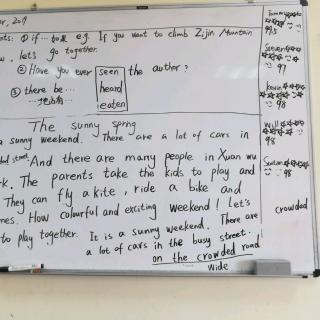 if … 如果 e.g. If you want to climb Zijin Mountain
, let's go together.
② Have you ever seen the author?
heard
eaten
③ there be…
The sunny sprng
sunny weekend. There are a lot of cars in
street. And there are many people in Xuan wu
The parents take the kids to play and
They can fly a kite, ride a bike and
How colourful and exciting weekend! Let's
to play together. It is a sunny weekend. There are
a lot of cars in the busy street.
on the crowded road
wide
Tommy
99.5
Steven
97
Kevin
98
Will
98
98
crowded